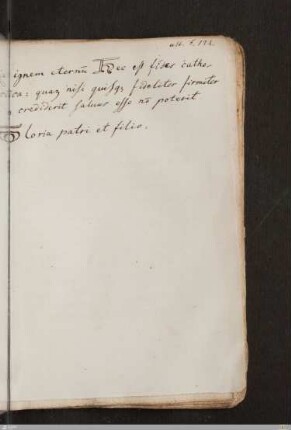 alt. f. 122.
ignem eternũ Hec est fides catho-
lica: quaꝫ nisi quisqꝫ fideliter firmiter
crediderit saluus esse nõ poterit
Gloria patri et filio.